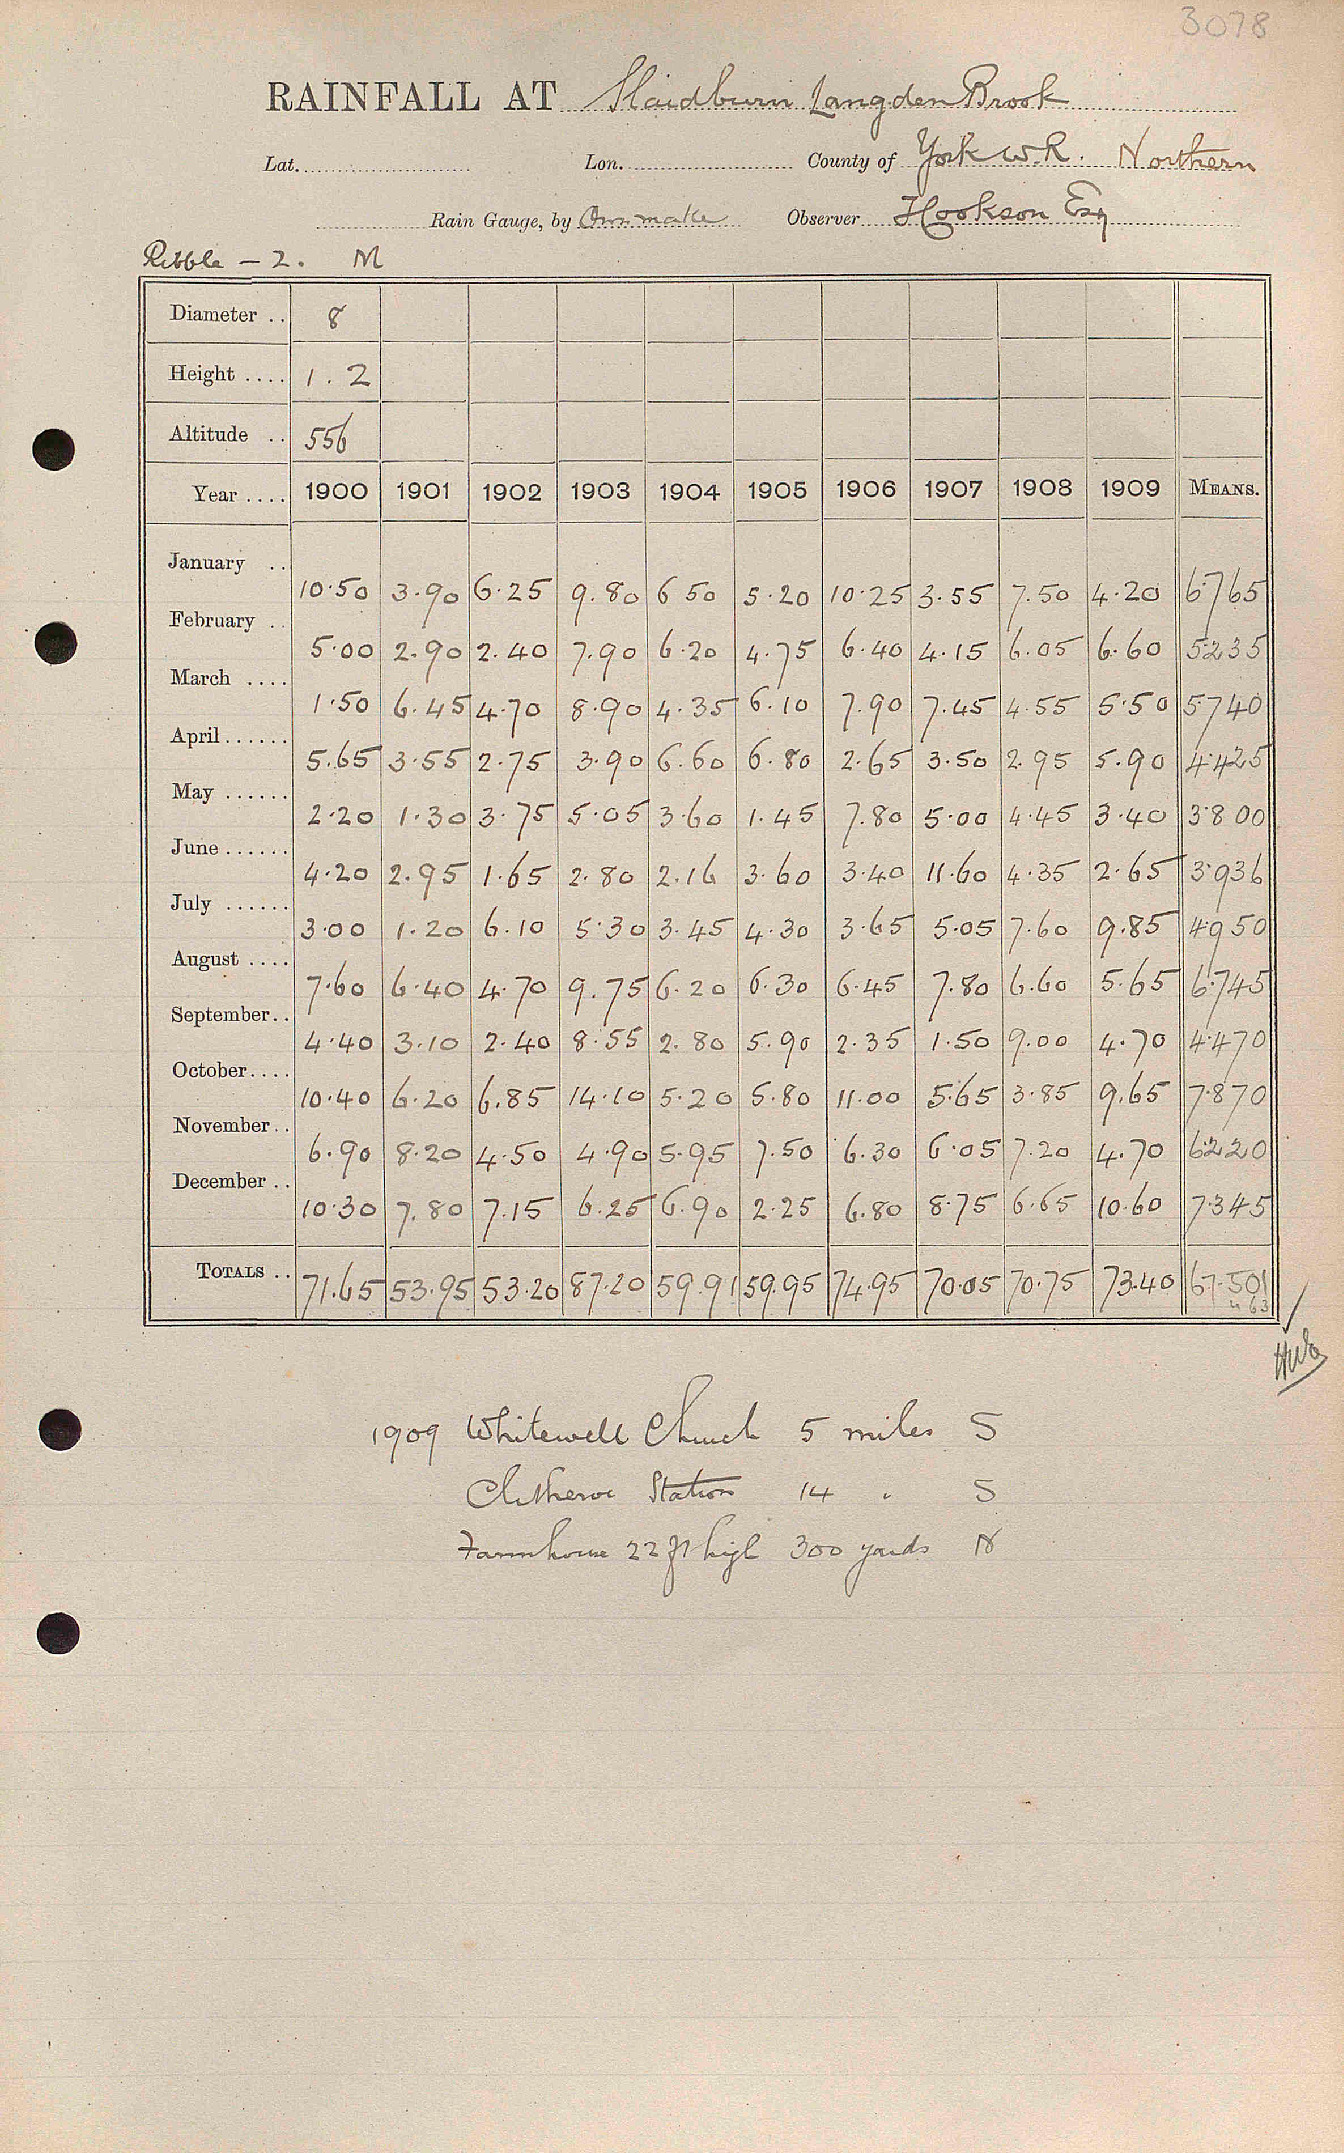 3078
RAINFALL AT Slaidburn Langden Brook
Lat. Lon. County of York W.R. Northern
Rain Gauge, by Own make Observer H Cookson Esq
Ribble - 2. M
Diameter .. 8
Height .... 1.2
Altitude .. 556
Year .... 1900 1901 1902 1903 1904 1905 1906 1907 1908 1909 MEANS.
January .. 10.50 3.90 6.25 9.80 6 50 5.20 10.25 3.55 7.50 4.20 6.765
February .. 5.00 2.90 2.40 7.90 6.20 4.75 6.40 4.15 6.05 6.60 5.235
March .... 1.50 6.45 4.70 8.90 4.35 6.10 7.90 7.45 4.55 5.50 5.740
April ...... 5.65 3.55 2.75 3.90 6.60 6.80 2.65 3.50 2.95 5.90 4.425
May ...... 2.20 1.30 3.75 5.05 3.60 1.45 7.80 5.00 4.45 3.40 3.800
June ...... 4.20 2.95 1.65 2.80 2.16 3.60 3.40 11.60 4.35 2.65 3.936
July ...... 3.00 1.20 6.10 5.30 3.45 4.30 3.65 5.05 7.60 9.85 4.950
August .... 7.60 6.40 4.70 9.75 6.20 6.30 6.45 7.80 6.60 5.65 6.745
September .. 4.40 3.10 2.40 8.55 2.80 5.90 2.35 1.50 9.00 4.70 4.470
October .... 10.40 6.20 6.85 14.10 5.20 5.80 11.00 5.65 3.85 9.65 7.870
November .. 6.90 8.20 4.50 4.90 5.95 7.50 6.30 6.05 7.20 4.70 6.220
December .. 10.30 7.80 7.15 6.25 6.90 2.25 6.80 8.75 6.65 10.60 7.345
TOTALS .. 71.65 53.95 53.20 87.20 59.91 59.95 74.95 70.05 70.75 73.40 67.501
1909 Whitewell Church 5 miles S
Clitheroe Station 14 " S
Farmhouse 22 ft high 300 yards N